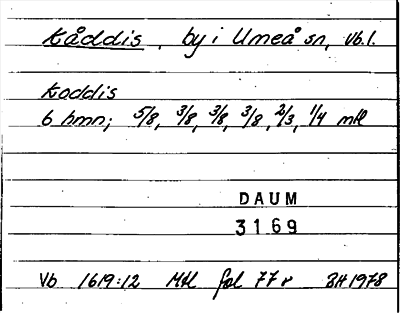 Kåddis, by i Umeå sn, Vb.l.
Koddis
6 hmn; 5/8, 3/8, 3/8, 3/8, 2/3, 1/4 mtl
DAUM
3169
Vb 1619:12 Mtl fol 77 r BH 1978